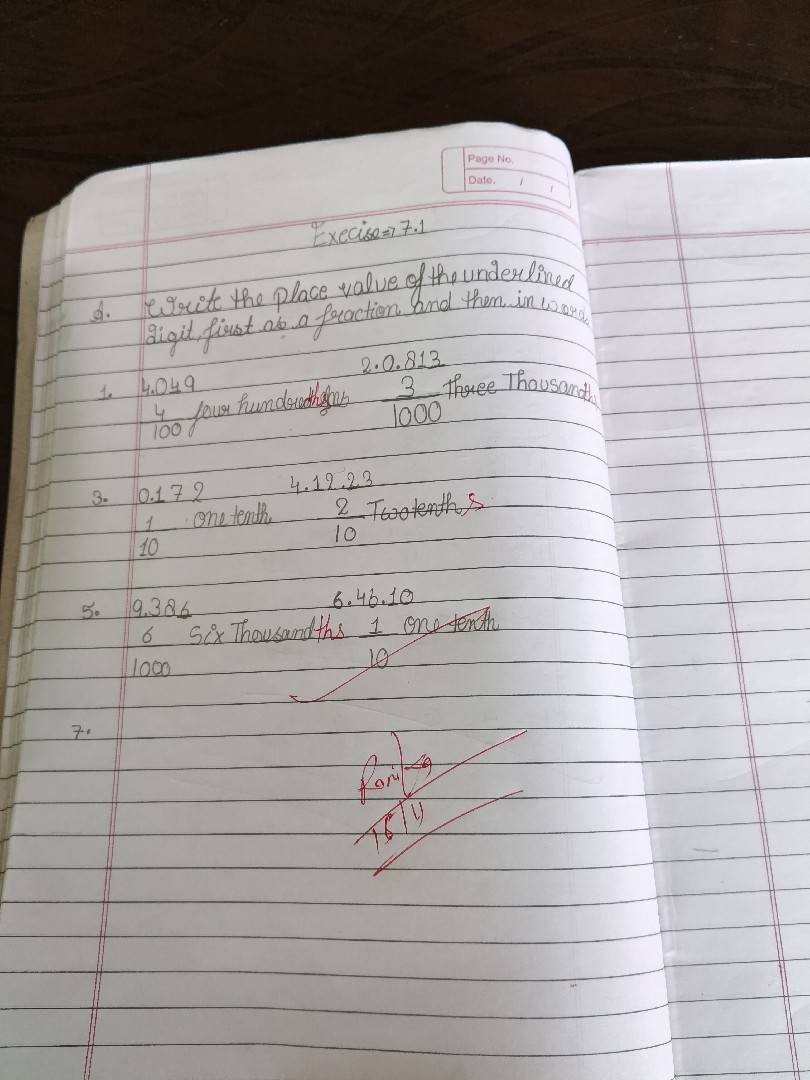 Page No.
Date. / /
Execise=> 7.1
d. Write the place value of the underlined
digit, first as a fraction and then in words
1. 4.049 2. 0.813
4/100 four hundredths 3/1000 Three Thousandths
3. 0.172 4. 12.23
1/10 one tenth 2/10 Two tenths
5. 9.386 6. 46.10
6/1000 Six Thousandths 1/10 one tenth
7.
15/4